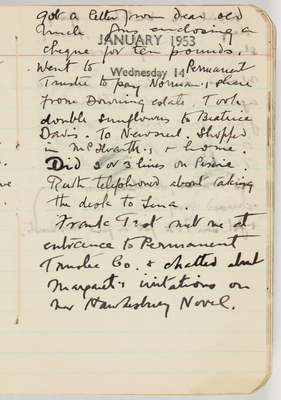 got a letter from dear old
Uncle enclosing a
JANUARY 1953
cheque for ten pounds.
Went to Permanent
Wednesday 14
Trustee to pay Norman's share
from Downing estate. Took
double sunflowers to Beatrice
Davis. To Newsreel. Shopped
in McIlrath's, & home.
Did 2 or 3 lines on
Ruth telephoned about taking
the desk to Lena.
Frank met me at
entrance to Permanent
Trustee Co. & chatted about
Margaret's irritations on
her Hawkesbury Novel.